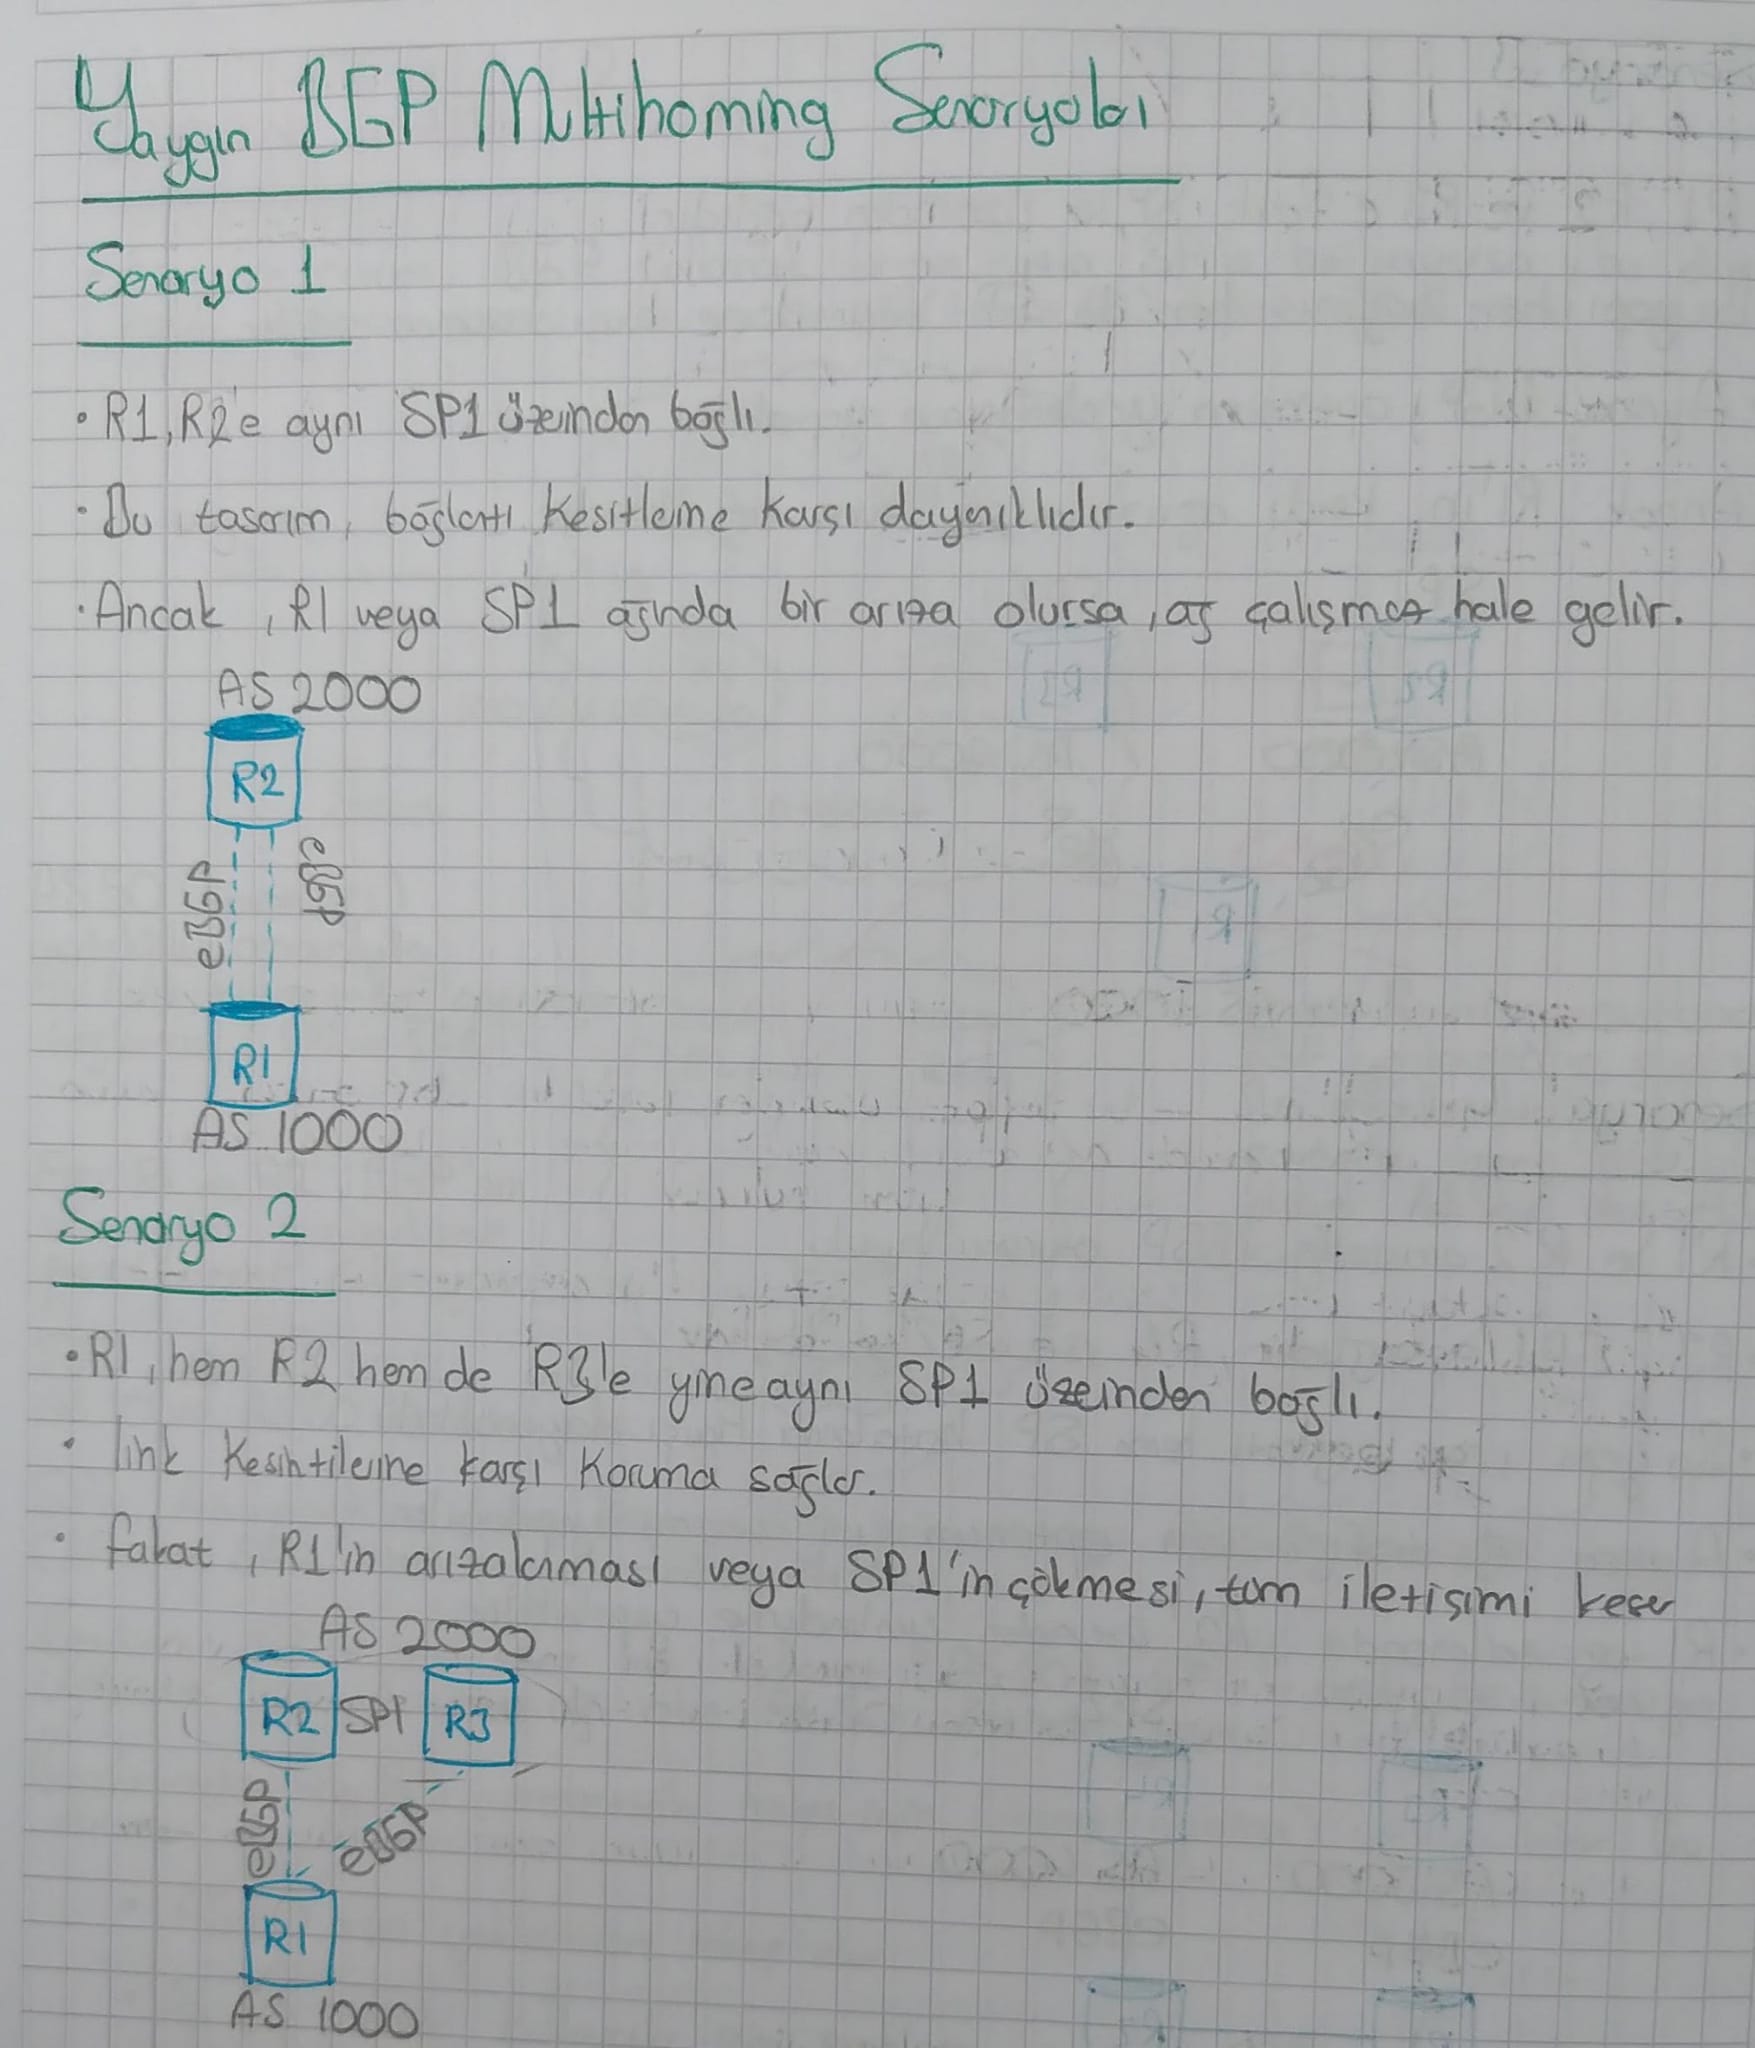 Yaygın BGP Multihoming Senaryoları
Senaryo 1
• R1, R2'e aynı SP1 üzerinden bağlı.
• Bu tasarım, bağlantı kesitlerine karşı dayanıklıdır.
• Ancak, R1 veya SP1 ağında bir arıza olursa, ağ çalışmaz hale gelir.
AS 2000
R2
eBGP eBGP
R1
AS 1000
Senaryo 2
• R1, hem R2 hem de R3'e yine aynı SP1 üzerinden bağlı.
• link kesintilerine karşı koruma sağlar.
• fakat, R1'in arızalanması veya SP1'in çökmesi, tüm iletişimi keser
AS 2000
R2 SP1 R3
eBGP eBGP
R1
AS 1000